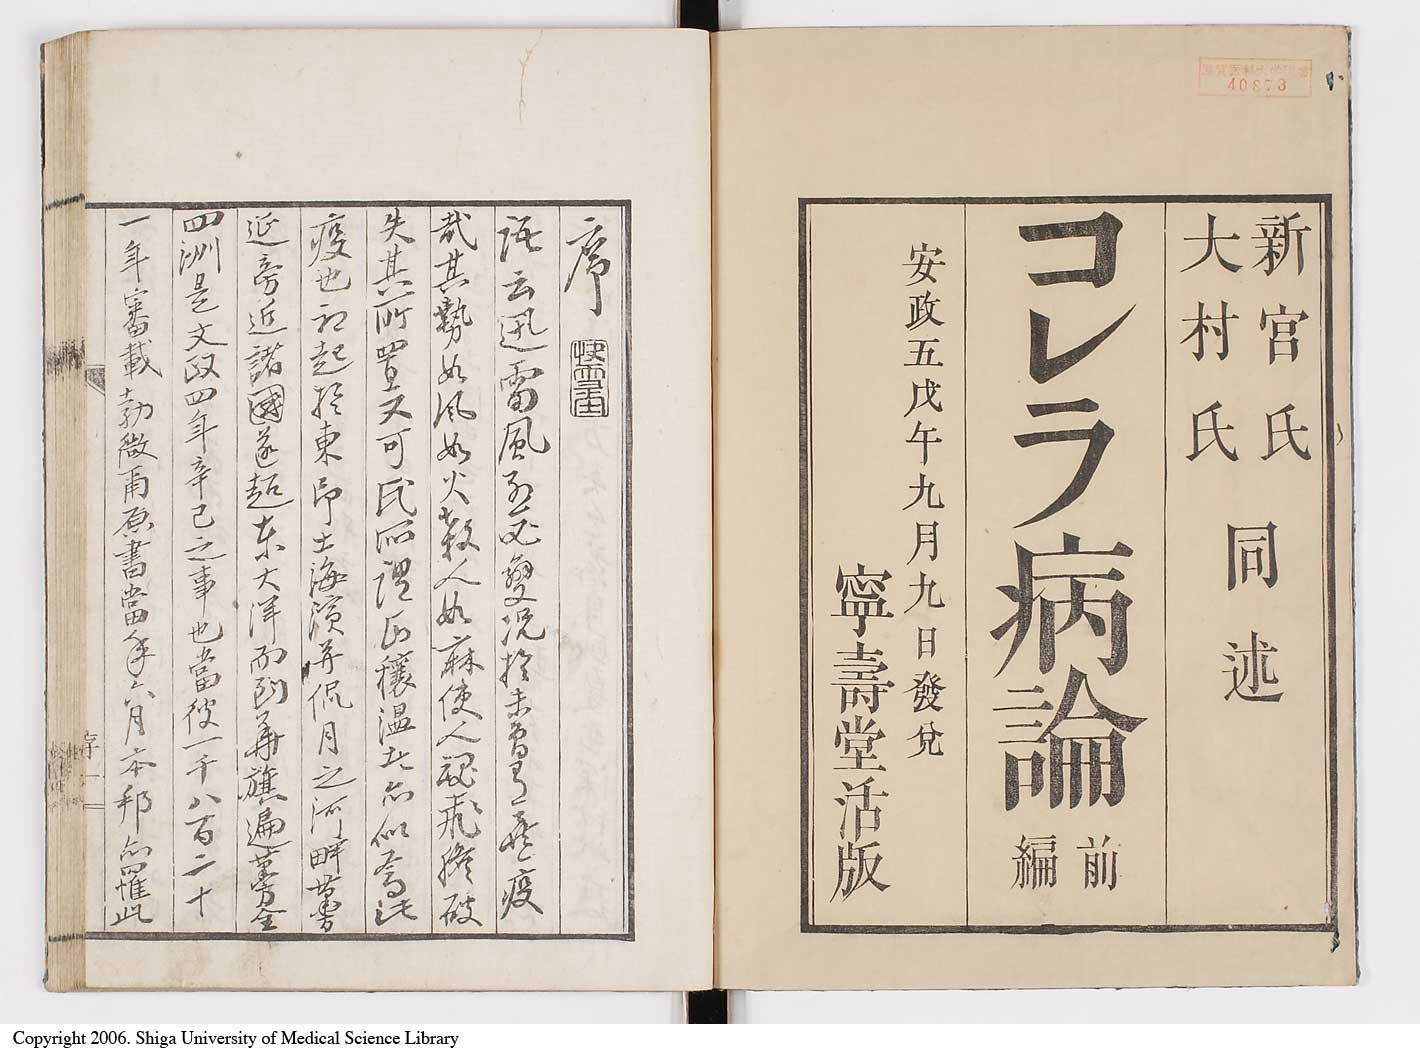 新宮氏
大村氏
同述
コレラ病論
前編
安政五戊午九月九日發兌
寧壽堂活版
40873
序
語云迅雷風烈必變况於未曾有悪疫
哉其勢如風如火殺人如麻使人魂飛膽破
失其所置又可氏所謂瓜穰温者亦似為此
疫也初起於東印土海濱并侃月之河畔蔓
延旁近諸國遂超東大洋而到華旗遍蔓全
四洲是文政四年辛巳之事也當彼一千八百二十
一年審載勃微爾原書當年六月本邦亦罹此
序 一
Copyright 2006. Shiga University of Medical Science Library